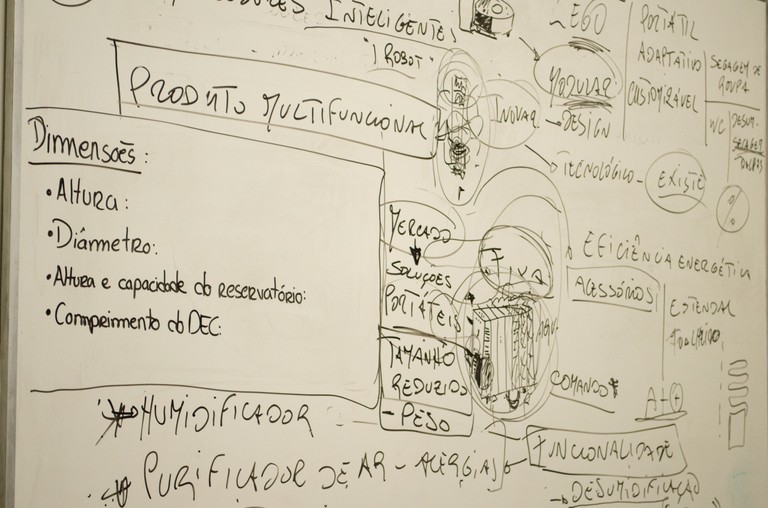 INTELIGENTES
"I ROBOT"
PRODUTO MULTIFUNCIONAL
EGO
MODULAR
INOVAR
DESIGN
TECNOLÓGICO - EXISTE
PORTÁTIL
ADAPTATIVO
CUSTOMIZÁVEL
SEGAGEM DE
ROUPA
WC
%
Dimensões:
•Altura:
•Diâmmetro:
•Altura e capacidade do reservatório:
•Comprimento do DEC:
MERCADO
SOLUÇÕES
PORTÁTEIS
TAMANHO
REDUZIDO
- PESO
FIXA
EFICIÊNCIA ENERGÉTICA
ACESSÓRIOS
ESTENDAL
COMANDO
A++
HUMIDIFICADOR
PURIFICADOR DE AR - ALERGIAS
FUNCIONALIDADE
DESUMIDIFICAÇÃO